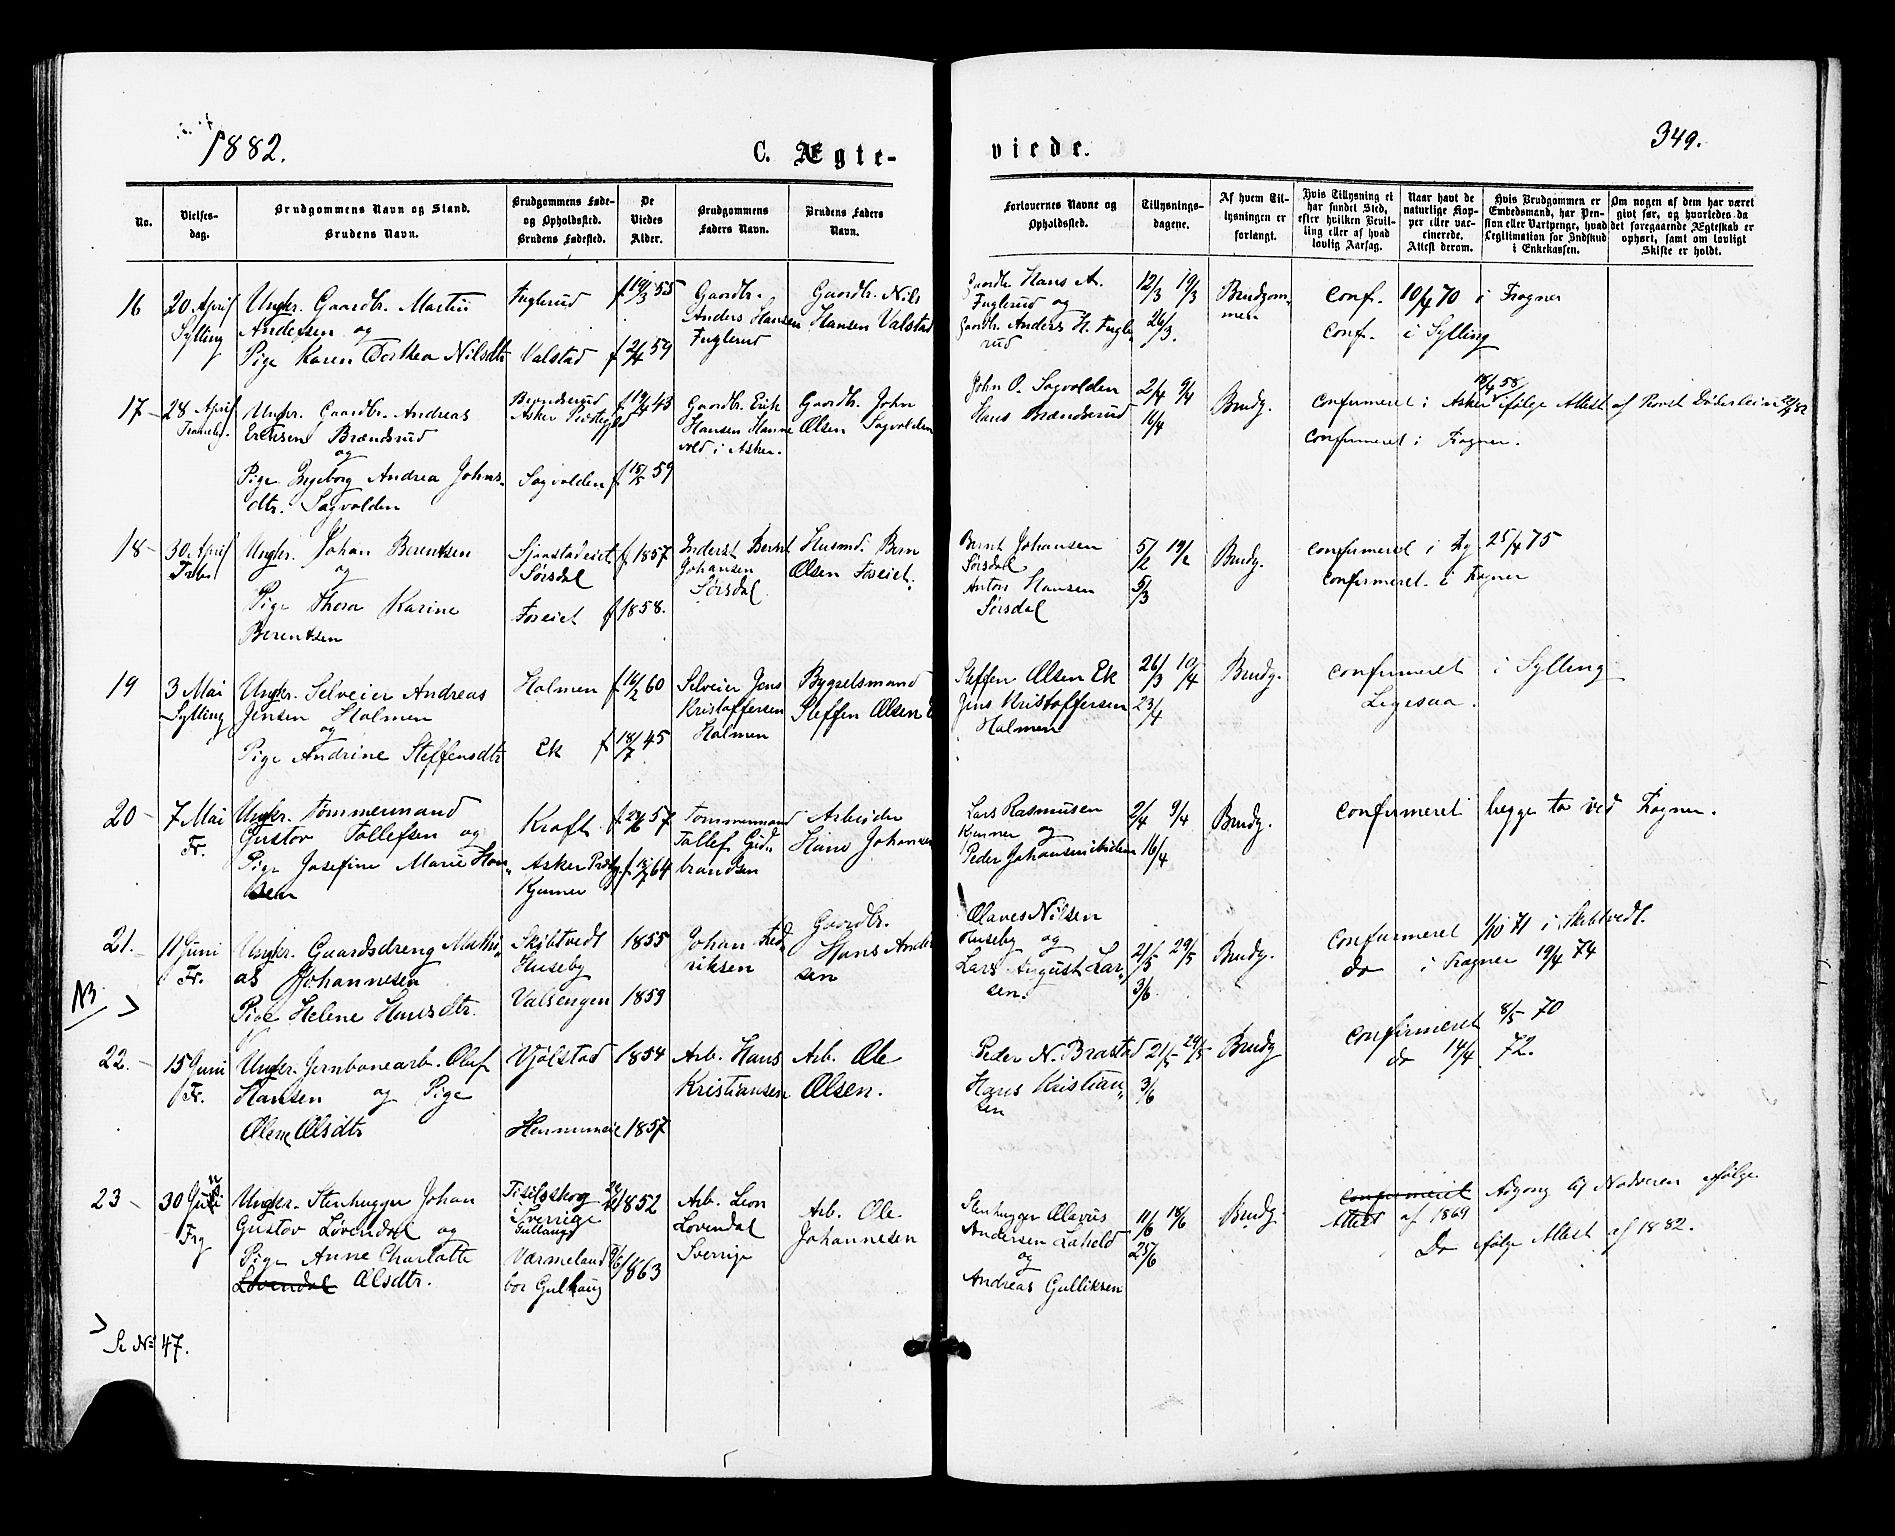 1882.
C. Ægte-
viede.
349.
No.
Vielses-
dag.
Brudgommens Navn og Stand.
Brudens Navn.
Brudgommens Føde-
og Opholdssted.
Brudens Fødested.
De
Viedes
Alder.
Brudgommens
Faders Navn.
Brudens Faders
Navn.
Forlovernes Navne og
Opholdssted.
Tillysnings-
dagene.
Af hvem Til-
lysningen er
forlangt.
Hvis Tillysning ei
har fundet Sted,
efter hvilken Bevil-
ling eller af hvad
lovlig Aarsag.
Naar havt de
naturlige Kop-
per eller vac-
cinerede.
Attest derom.
Hvis Brudgommen er
Embedsmand, har Pen-
sion eller Vartpenge, hvad
Legitimation for Indskud
i Enkekassen.
Om nogen af dem har været
givt før, og hvorledes da
det foregaaende Ægteskab er
ophørt, samt om lovligt
Skifte er holdt.
16
20 April
Sylling
Ungkr. Gaardbr. Martin
Andersen og
Pige Karen Dorthea Nilsdtr
Fuglerud
Valstad
f 19/3 55
f 21/4 59
Gaardbr.
Anders Hansen
Fuglerud
Gaardbr. Nils
Hansen Valstad
Gaardbr. Hans A.
Fuglerud og
Gaardbr. Anders H. Fugle-
rud
12/3 19/3
26/3.
Brudgom-
men
Conf. 10/4 70 i Frogner
Conf. i Sylling
17
28 April
Ungkr. Gaardbr. Andreas
Eriksen Brændsrud
og
Pige Ingeborg Andrea Johns-
dtr. Sagvolden
Brændsrud
Asker Prstegjeld
Sagvolden
f 15/5 59
Gaardbr. Erik
Hansen Hanne
vold i Asker.
Gaardbr. John
Olsen Sagvolden
John O. Sagvolden
Hans Brændsrud
2/4 9/4
16/4
Brudg.
confirmeret i Asker ifølge Attest af Provst
confirmeret i Frogner.
18
30 April
Ungkr. Johan Berentsen
og
Pige Thora Karine
Berentsen
Sjaastadeiet
Sørsdal
Foseiet
f 1857
f 1858.
Inderst Bernt
Johansen
Sørsdal
Husmd. Bern
Olsen Foseiet.
Bernt Johansen
Sørsdal
Anton Hansen
Sørsdal
5/2 19/2
5/3
Brudg.
confirmeret i Fg. 25/4 75
confirmeret i Frogner
19
3 Mai
Sylling
Ungkr. Selveier Andreas
Jensen Holmen
og
Pige Andrine Steffensdtr
Holmen
Ek
f 16/2 60
f 18/7 45
Selveier Jens
Kristoffersen
Holmen
Bygselsmand
Steffen Olsen
Steffen Olsen Ek
Jens Kristoffersen
Holmen
26/3 10/4
23/4
Brudg.
confirmeret i Sylling
Ligesaa.
20
7 Mai
Fr.
Ungkr. Tømmermand
Gustav Tollefsen og
Pige Josefine Marie Han-
sen
Kroft
Asker Prstg.
Kjenner
f 18/7 64
Tømmermand
Tollef Gud-
brandsen
Arbeider
Hans Johansen
Lars Rasmusen
Kjenner og
Peder Johansen ibidem
2/4 9/4
16/4
Brudg.
Confirmeret begge to ved Frogner.
21.
11 Juni
Fr.
Ungkr. Gaardsdreng Mathi-
as Johannesen
Pige Helene Hansdtr.
Skibtvedt
Huseby
Valsengen
1855
1859
Johan Fred-
riksen
Gaardbr.
Hans Ander
sen
Olaves Nilsen
Huseby og
Lars August Lar-
sen.
21/5 29/5
3/6.
Brudg.
Confirmeret 1/10 71 i Skibtvedt.
do i Frogner 19/4 74
NB.
22.
15 Juni
Fr.
Ungkr. Jernbanearb. Oluf
Hansen og Pige
Olene Olsdtr
Vjølstad
1854
1857
Arb. Hans
Kristiansen
Arb. Ole
Olsen.
Peder N. Brastad
Hans Kristian-
sen
21/5 29/5
3/6
Brudg
Confirmeret 8/5 70
do 14/4 72.
23
30 Juni
Frg
Ungkr. Stenhugger Johan
Gustav Løvendal og
Pige Anne Charlotte
Løvendal Olsdtr.
Sverrige
Gulhaug
Varmeland
bor Gulhaug
1852
1863
Arb. Leon
Løvendal
Sverrige
Arb. Ole
Johannesen
Stenhugger Olavus
Andersen Løkeld
og
Andreas Gulliksen
11/6 18/6
25/6
Brudg.
Confirmeret Adgang til Nadveren ifølge
Attest af 1869
Do ifølge Attest af 1882.
Se No 47.